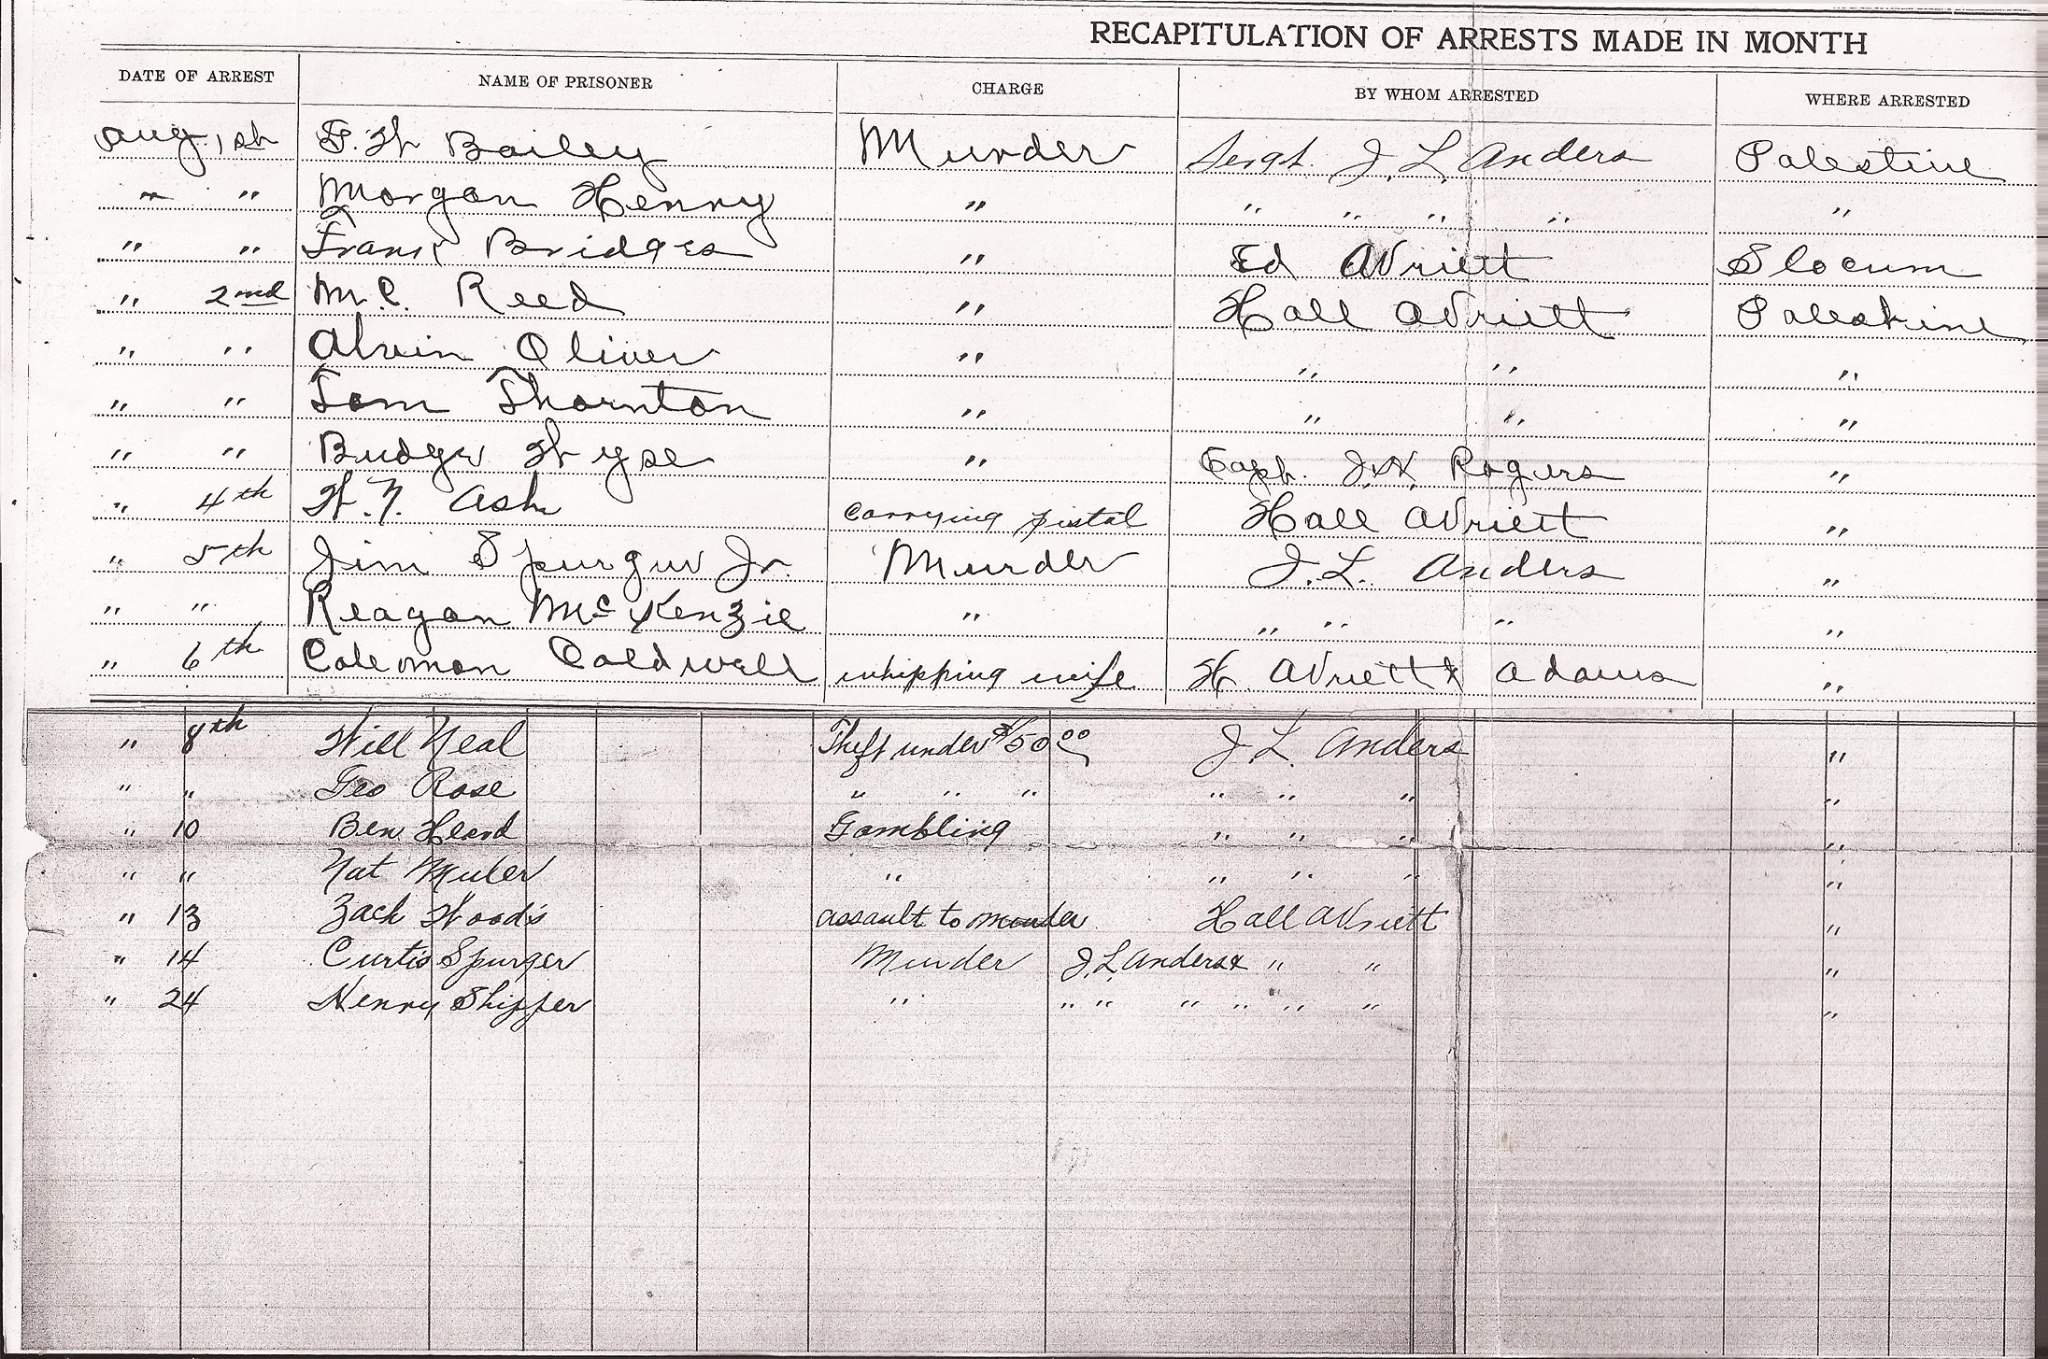 RECAPITULATION OF ARRESTS MADE IN MONTH
DATE OF ARREST NAME OF PRISONER CHARGE BY WHOM ARRESTED WHERE ARRESTED
Aug. 1st F. W Bailey Murder Sergt. J. L. Anders Palestine
" " Morgan Henry " " " " " "
" " Frank Bridges " Ed Avriett Slocum
" 2nd M. C. Reed " Hall Avriett Palestine
" " Alvin Oliver " " " "
" " Tom Thornton " " " "
" " Budge Wyse " Capt. J. H. Rogers "
" 4th W. N. Ash carrying pistol Hall Avriett "
" 5th Jim Spurger Jr. Murder J. L. Anders "
" " Reagan McKenzie " " " " "
" 6th Coleman Caldwell whipping wife H. Avriett & Adams "
" 8th Will Neal Theft under $50.00 J L. Anders "
" " Geo Rose " " " " " " "
" 10 Ben Heard Gambling " " " "
" " Nat " " " " "
" 13 Zack Woods assault to murder Hall Avriett "
" 14 Curtis Spurger Murder J. L. Anders & " " "
" 24 Henry Shipper " " " " " " " "